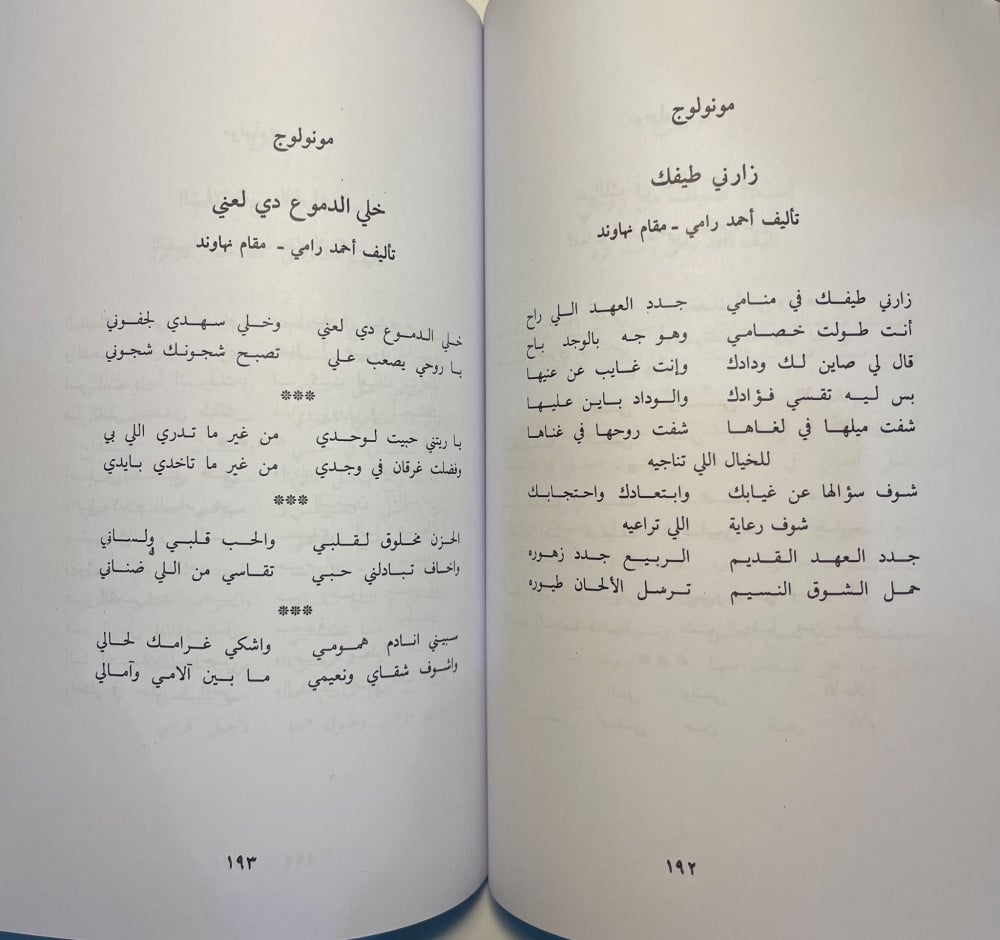 مونولوج
زارني طيفك
تأليف أحمد رامي - مقام نهاوند
زارني طيفك في منامي جدد العهد اللي راح
أنت طولت خصامي وهو جه بالوجد باح
قال لي صاين لك ودادك وإنت غايب عن عنيها
بس ليه تقسي فؤادك والوداد باين عليها
شفت ميلها في لغاها شفت روحها في غناها
للخيال اللي تناجيه
شوف سؤالها عن غيابك وابتعادك واحتجابك
شوف رعاية اللي تراعيه
جدد العهد القديم الربيع جدد زهوره
حمل الشوق النسيم ترسل الألحان طيوره
١٩٢
مونولوج
خلي الدموع دي لعني
تأليف أحمد رامي - مقام نهاوند
خلي الدموع دي لعني وخلي سهدي لجفوني
يا روحي يصعب علي تصبح شجونك شجوني
***
يا ريتني حبيت لوحدي من غير ما تدري اللي بي
وفضلت غرقان في وجدي من غير ما تاخدي بايدي
***
الحزن مخلوق لقلبي والحب قلبي ولساني
واخاف تبادلني حبي تقاسي من اللي ضناني
***
سيبني انادم همومي واشكي غرامك لحالي
واشوف شقاي ونعيمي ما بين آلامي وآمالي
١٩٣